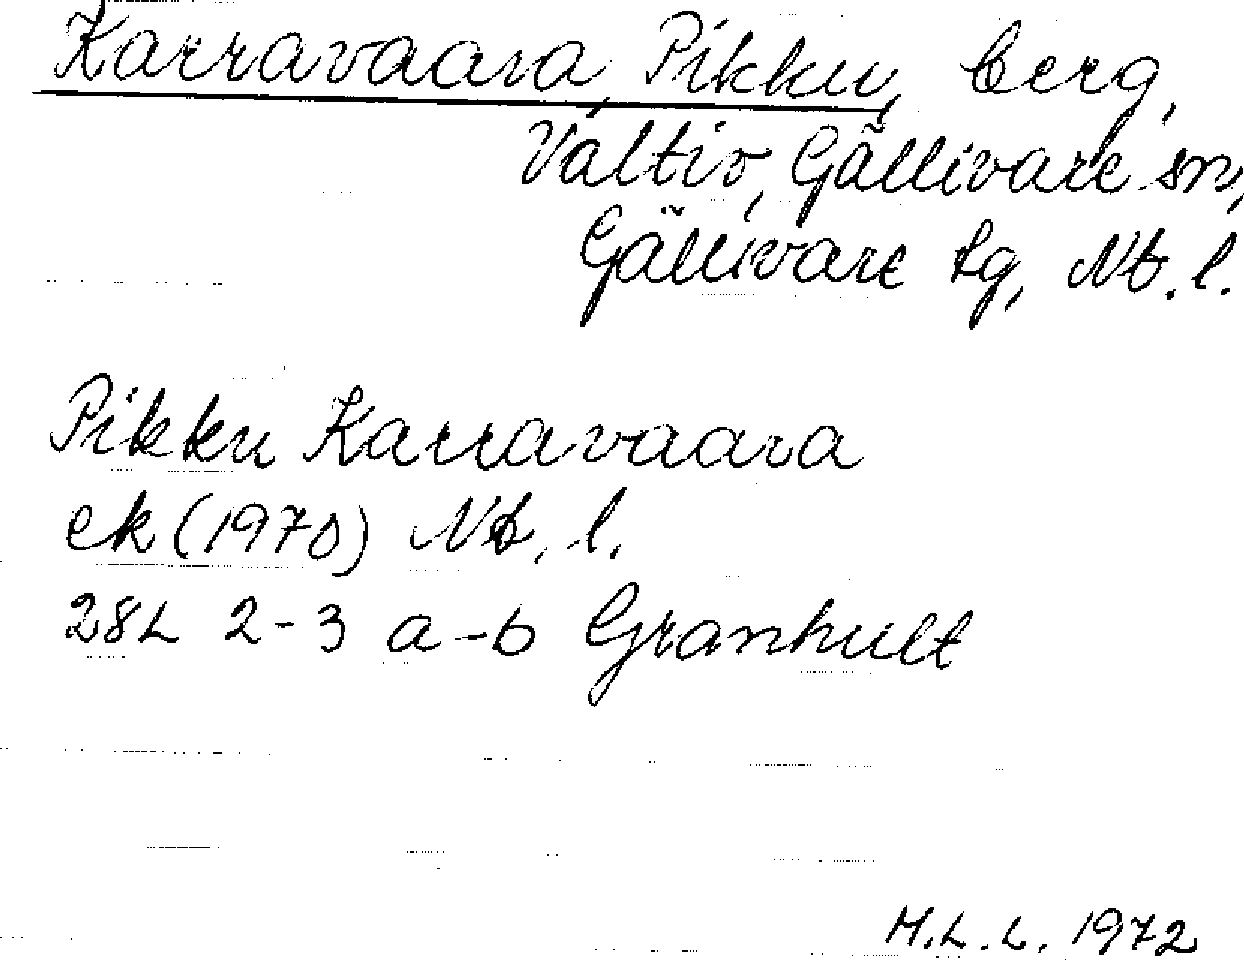 Karravaara, Pikku, berg,
Valtio, Gällivare sn,
Gällivare tg, Nb. l.
Pikku Karravaara
ek (1970) Nb. l.
28L 2-3 a-b Granhult
M.L.L. 1972